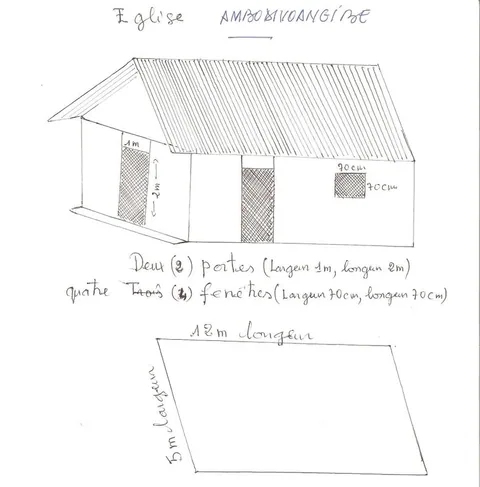 Eglise AMBODIVOANGIBE
1m
2m
70cm
70cm
Deux (2) portes (Largeur 1m, longeur 2m)
quatre Trois (4) fenêtres (Largeur 70cm, longeur 70cm)
12m longeur
5m largeur